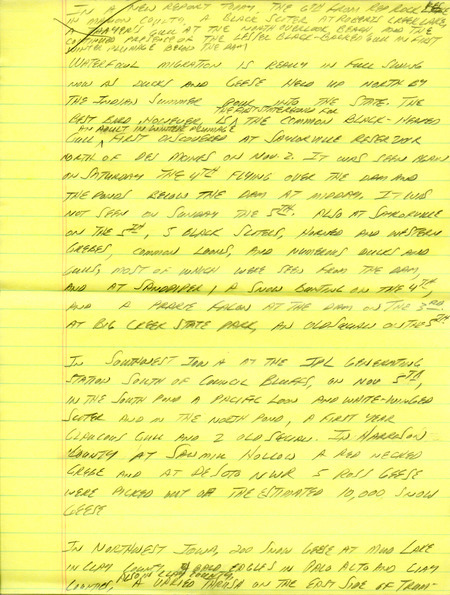 IN A NEW REPORT TODAY, THE 6TH FROM RED ROCK
IN MARION COUNTY, A BLACK SCOTER AT ROBERTS CREEK LAKE,
A THAYER'S GULL AT THE NORTH OVERLOOK BEACH AND THE
CONTINUED PRESENCE OF THE LESSER BLACK-BACKED GULL IN FIRST
WINTER PLUMAGE BELOW THE DAM
WATERFOWL MIGRATION IS REALLY IN FULL SWING
NOW AS DUCKS AND GEESE HELD UP NORTH BY
THE INDIAN SUMMER POUR INTO THE STATE. THE
BEST BIRD, HOWEVER, IS THE FIRST STATE RECORD FOR THE COMMON BLACK-HEADED
GULL, AN ADULT IN WINTER PLUMAGE FIRST DISCOVERED AT SAYLORVILLE RESERVOIR
NORTH OF DES MOINES ON NOV 2. IT WAS SEEN AGAIN
ON SATURDAY THE 4TH FLYING OVER THE DAM AND
THE PONDS BELOW THE DAM AT MIDDAY. IT WAS
NOT SEEN ON SUNDAY THE 5TH. ALSO AT SAYLORVILLE
ON THE 5TH, 5 BLACK SCOTERS, HORNED AND WESTERN
GREBES, COMMON LOONS, AND NUMEROUS DUCKS AND
GULLS, MOST OF WHICH WERE SEEN FROM THE DAM,
AND AT SANDPIPER, A SNOW BUNTING ON THE 4TH
AND A PRAIRIE FALCON AT THE DAM ON THE 3RD.
AT BIG CREEK STATE PARK, AN OLDSQUAW ON THE 5TH.
IN SOUTHWEST IOWA AT THE IPL GENERATING
STATION SOUTH OF COUNCIL BLUFFS, ON NOV 5TH,
IN THE SOUTH POND A PACIFIC LOON AND WHITE-WINGED
SCOTER AND IN THE NORTH POND, A FIRST YEAR
GLAUCOUS GULL AND 2 OLDSQUAW. IN HARRISON
COUNTY AT SAWMILL HOLLOW A RED NECKED
GREBE AND AT DESOTO NWR 5 ROSS GEESE
WERE PICKED OUT OF THE ESTIMATED 10,000 SNOW
GEESE
IN NORTHWEST IOWA, 200 SNOW GEESE AT MUD LAKE
IN CLAY COUNTY, BALD EAGLES IN PALO ALTO AND CLAY
COUNTIES, ALSO IN CLAY COUNTY, A VARIED THRUSH ON THE EAST SIDE OF TRUM-